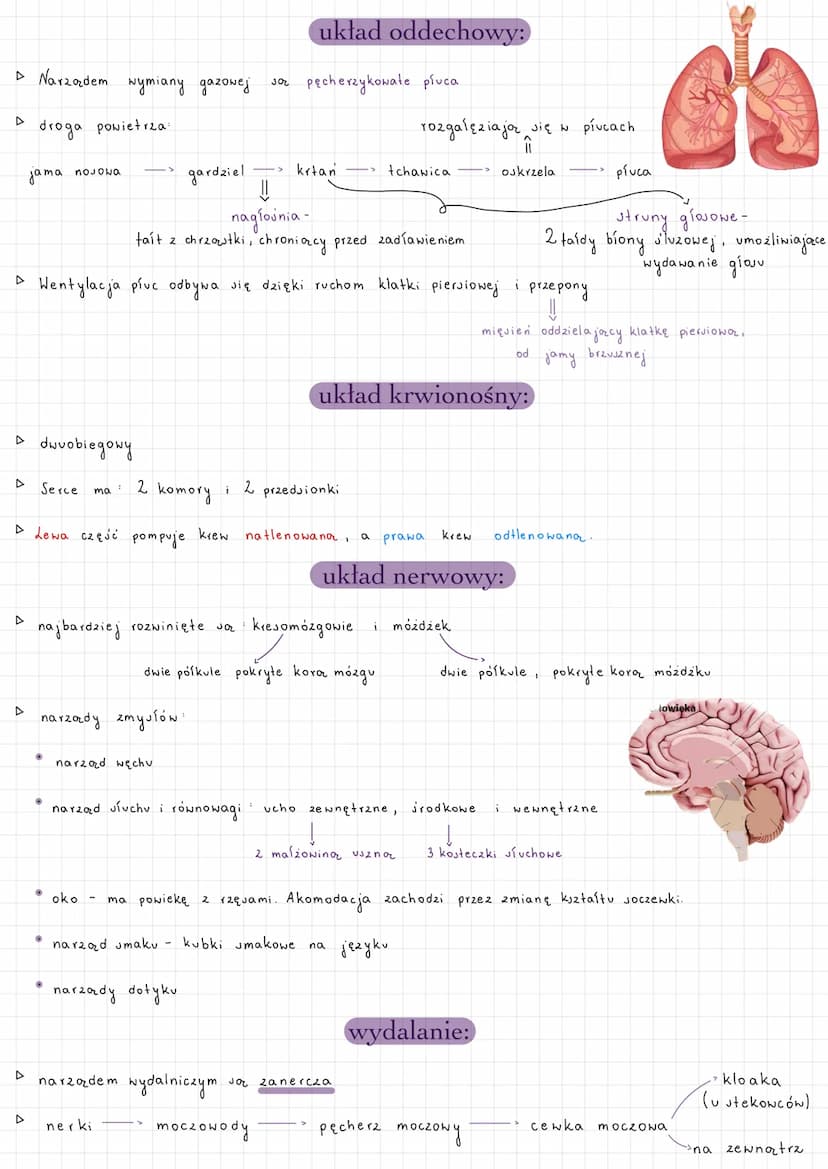 układ oddechowy:
▷ Narządem wymiany gazowej są pęcherzykowate płuca
▷ droga powietrza:
rozgałęziają się w płucach
jama nosowa → gardziel → krtań → tchawica → oskrzela → płuca
nagłośnia -
fałt z chrząstki, chroniący przed zadławieniem
struny głosowe -
2 fałdy błony śluzowej, umożliwiające
wydawanie głosu
▷ Wentylacja płuc odbywa się dzięki ruchom klatki piersiowej i przepony
mięsień oddzielający klatkę piersiową,
od jamy brzusznej
układ krwionośny:
▷ dwuobiegowy
▷ Serce ma: 2 komory i 2 przedsionki
▷ Lewa część pompuje krew natlenowaną, a prawa krew odtlenowaną.
układ nerwowy:
▷ najbardziej rozwinięte są: kresomózgowie i móżdżek
dwie półkule pokryte korą mózgu
dwie półkule, pokryte korą móżdżku
▷ narządy zmysłów:
łowieka
• narząd węchu
• narząd słuchu i równowagi: ucho zewnętrzne, środkowe i wewnętrzne
z małżowiną uszną
3 kosteczki słuchowe
• oko - ma powiekę z rzęsami. Akomodacja zachodzi przez zmianę kształtu soczewki.
• narząd smaku - kubki smakowe na języku
• narządy dotyku
wydalanie:
▷ narządem wydalniczym są zanercza
▷ nerki → moczowody → pęcherz moczowy → cewka moczowa
kloaka
(u stekowców)
na zewnątrz